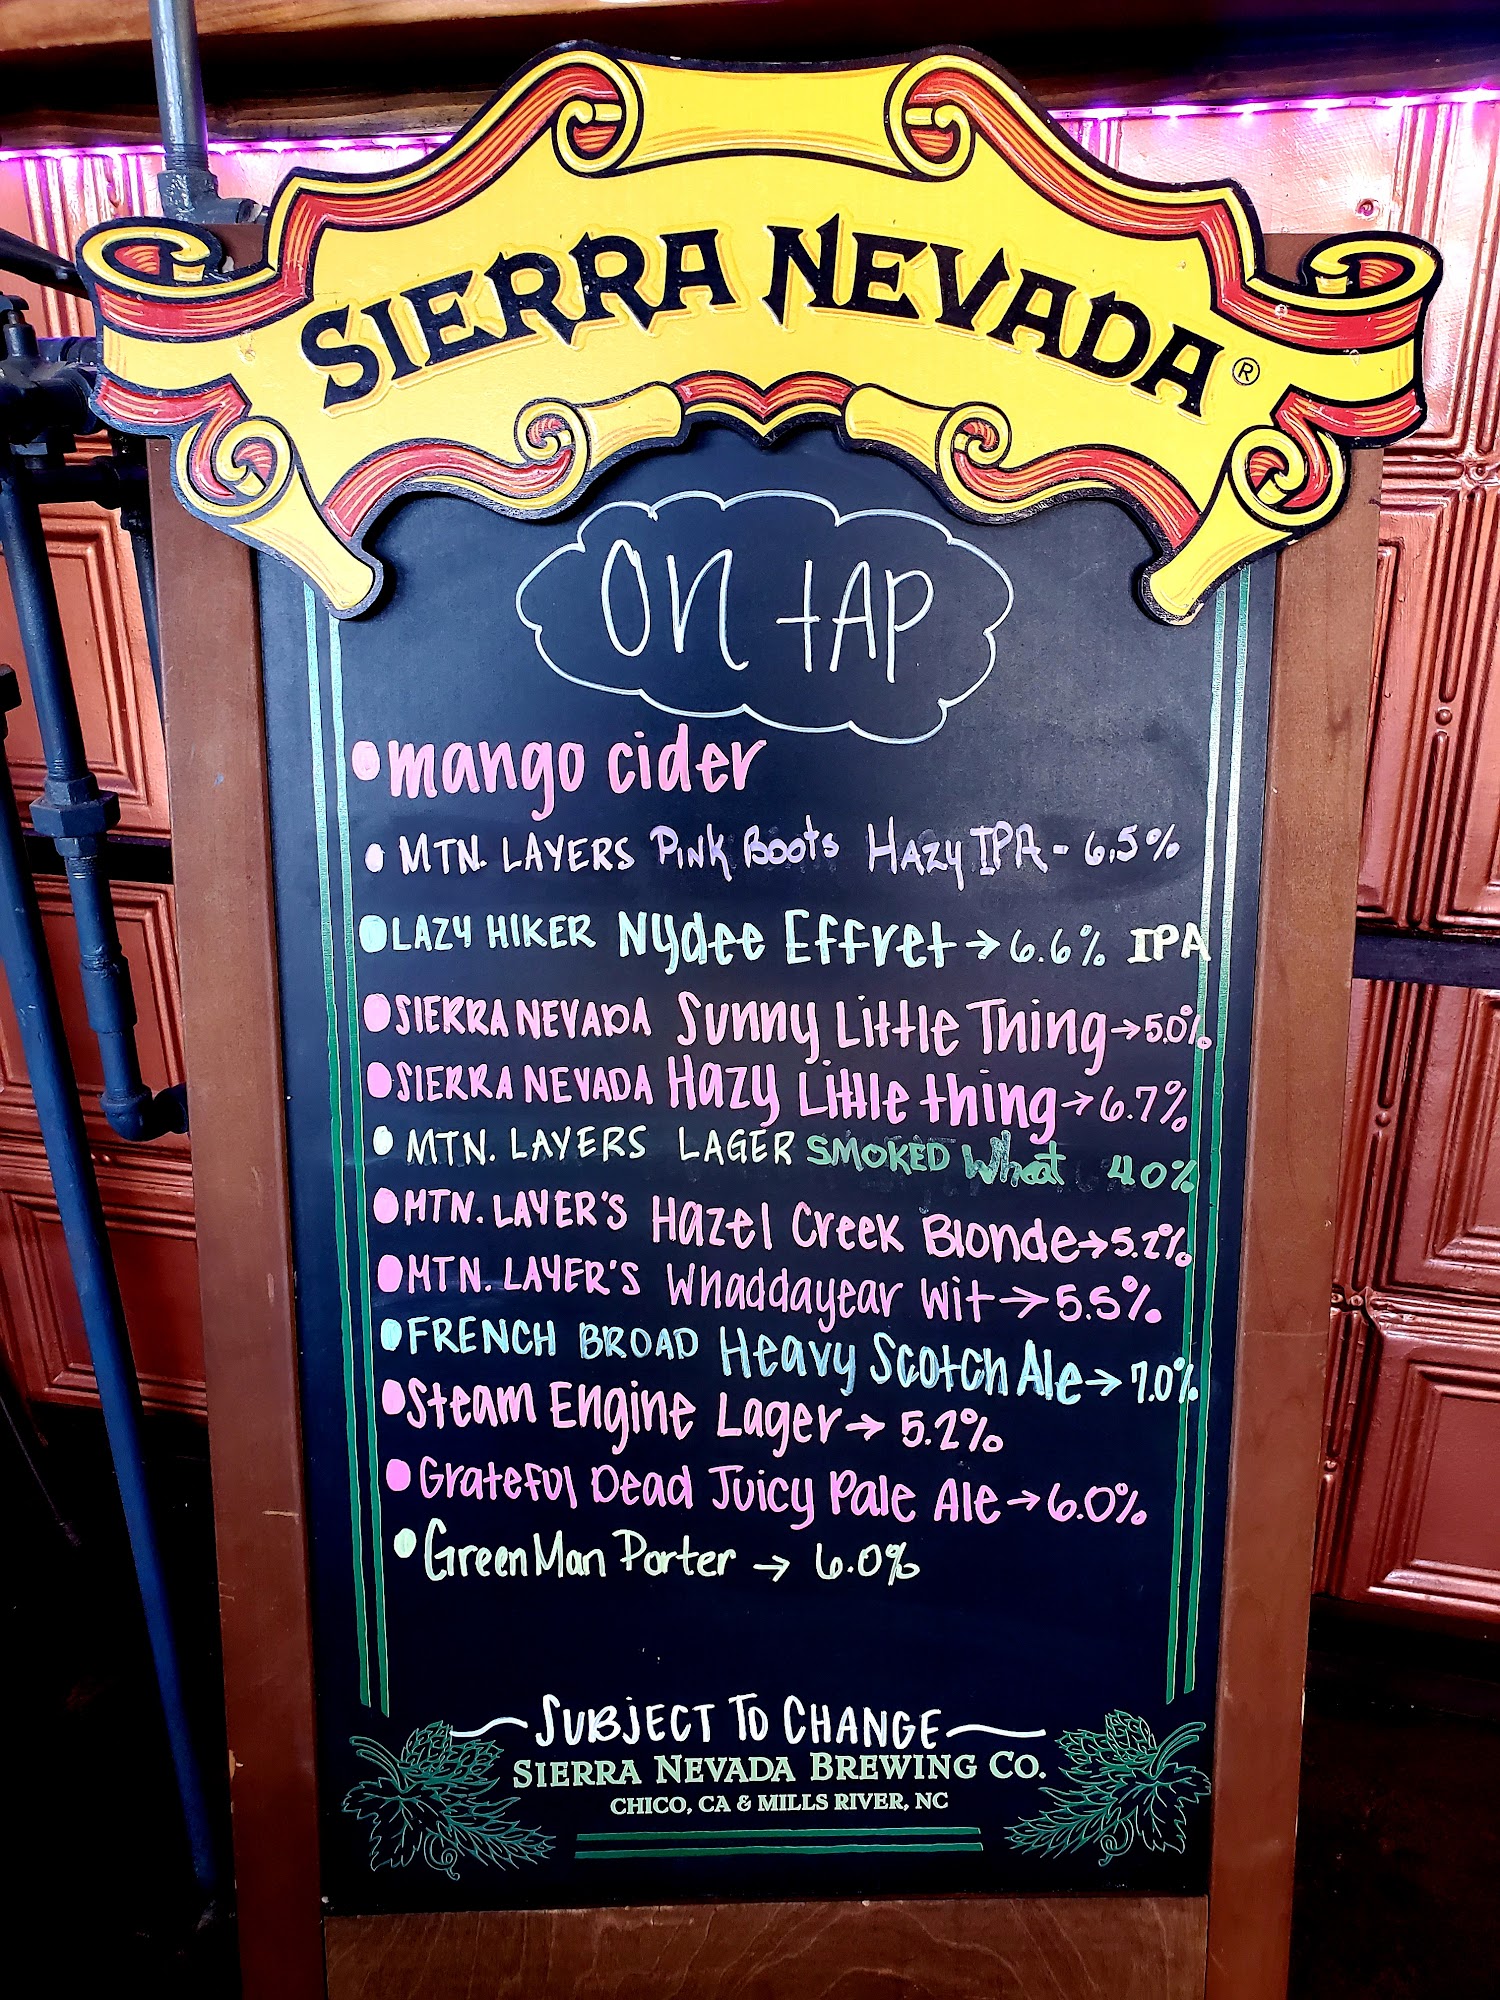 SIERRA NEVADA®
On tAP
•mango cider
• MTN. LAYERS Pink Boots Hazy IPA - 6.5%
•LAZY HIKER Nydee Effret → 6.6% IPA
•SIERRA NEVADA Sunny Little Thing → 5.0%
•SIERRA NEVADA Hazy Little thing → 6.7%
• MTN. LAYERS LAGER SMOKED Wheat 4.0%
•MTN. LAYER'S Hazel Creek Blonde → 5.2%
•MTN. LAYER'S Whaddayear Wit → 5.5%
•FRENCH BROAD Heavy Scotch Ale → 7.0%
•Steam Engine Lager → 5.2%
•Grateful Dead Juicy Pale Ale → 6.0%
•Green Man Porter → 6.0%
SUBJECT TO CHANGE
SIERRA NEVADA BREWING CO.
CHICO, CA & MILLS RIVER, NC